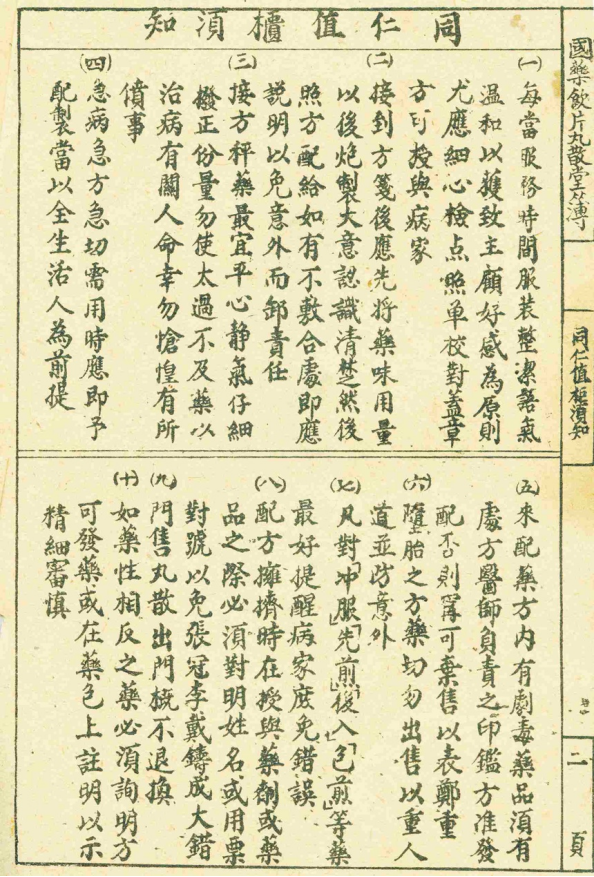 同仁值櫃須知
㈠每當服務時間服装整潔語氣
温和以獲致主顧好感為原則
尤應細心檢点照单校對蓋章
方可授與病家
㈡接到方箋後應先将藥味用量
以後炮製大意認識清楚然後
照方配給如有不敷合處即應
説明以免意外而卸責任
㈢接方秤藥最宜平心静氣仔細
撥正份量勿使太過不及藥以
治病有關人命幸勿愴惶有所
僨事
㈣急病急方急切需用時應即予
配製當以全生活人為前提
㈤來配藥方内有劇毒藥品須有
處方醫師負責之印鑑方准發
配否則寗可棄售以表鄭重
㈥墮胎之方藥切勿出售以重人
道並防意外
㈦凡對「冲服」「先煎」「後入」「包煎」等藥
最好提醒病家庶免錯誤
㈧配方擁擠時在授與藥劑或藥
品之際必須對明姓名或用票
對號以免張冠李戴鑄成大錯
㈨門售丸散出門概不退換
㈩如藥性相反之藥必須詢明方
可發藥或在藥包上註明以示
精細審慎
國藥飲片丸散堂簿
同仁值櫃須知
二 頁